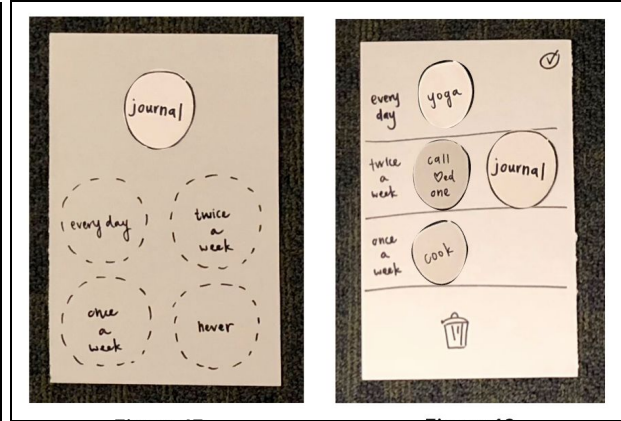 journal
every day
twice
a
week
once
a
week
never
every
day
yoga
twice
a
week
call
♡ed
one
journal
once
a
week
cook